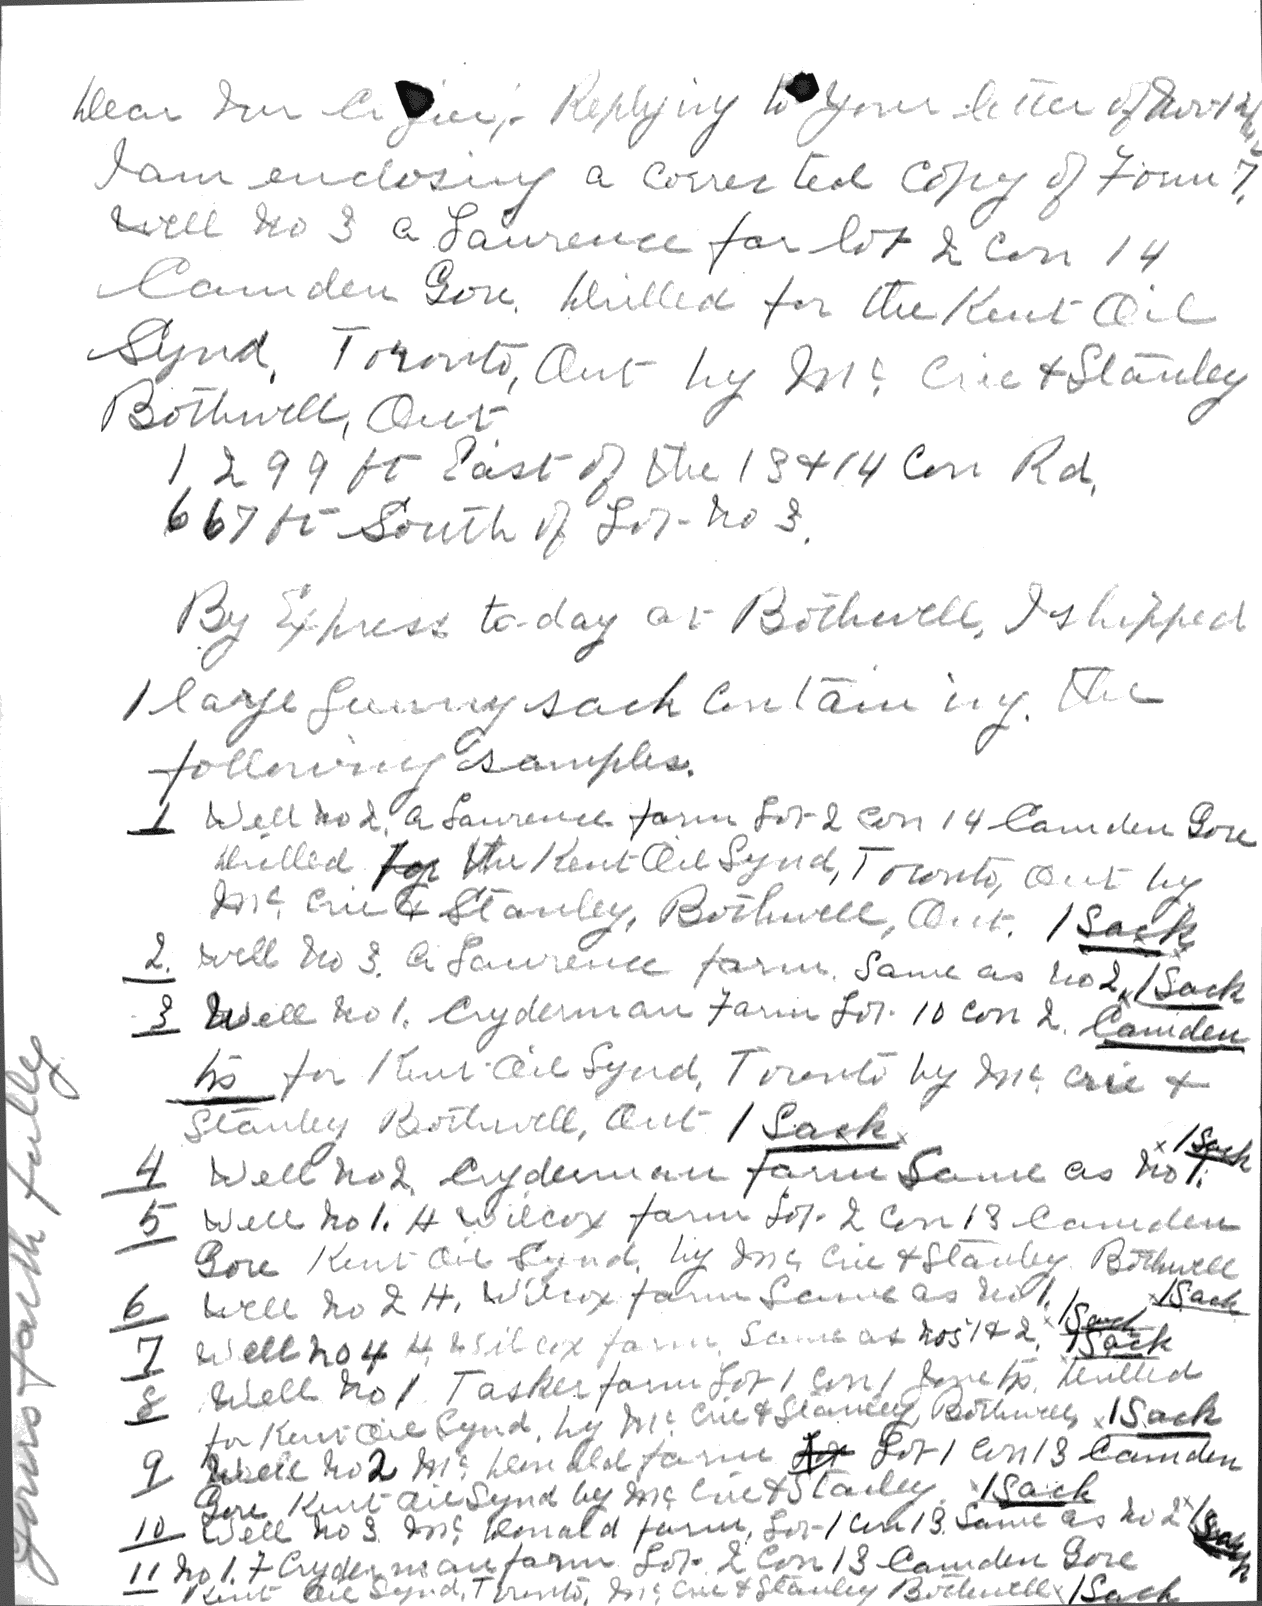 Dear Mr Replying to your letter of Nov 12
I am enclosing a corrected copy of Form 7,
Well No 3 A Laurence far lot 2 Con 14
Camden Gore. Drilled for the Kent Oil
Synd, Toronto, Ont by Mc Crie & Stanley
Bothwell, Ont
1299 ft East of the 13 & 14 Con Rd,
667 ft South of Lot No 3.
By Express to-day at Bothwell, I shipped
1 large Gunny sack containing. the
following samples.
1 Well No 2, A Laurence farm Lot 2 Con 14 Camden Gore
Drilled for the Kent Oil Synd, Toronto, Ont by
Mc Crie & Stanley, Bothwell, Ont. 1 Sack
2. Well No 3. A Laurence farm. Same as No 2, 1 Sack
3 Well No 1. Cryderman Farm Lot 10 Con 2. Camden
tp for Kent Oil Synd, Toronto by Mc Crie &
Stanley Bothwell, Ont 1 Sack
4 Well No 2, Cryderman farm Same as No 1. x 1 Sack
5 Well No 1. H Wilcox farm Lot 2 Con 13 Camden
Gore Kent Oil Synd, by Mc Crie & Stanley Bothwell
x 1 Sack
6 Well No 2 H. Wilcox farm Same as No 1. x 1 Sack
7 Well No 4 H Wilcox farm, Same as Nos 1 & 2, 1 Sack
8 Well No 1 Tasker farm Lot 1 Con 1 Drilled
for Kent Oil Synd, by Mc Crie & Stanley, Bothwell, x 1 Sack
9 Well No 2 Mc Donald farm Lot 1 Con 13 Camden
Gore Kent Oil Synd by Mc Crie & Stanley, x 1 Sack
10 Well No 3 Mc Donald farm, Lot 1 Con 13 Same as No 2 x 1 Sack
11 No 1. F Cryderman farm Lot 2 Con 13 Camden Gore
Kent Oil Synd, Toronto, Mc Crie & Stanley Bothwell x 1 Sack
Yours faithfully